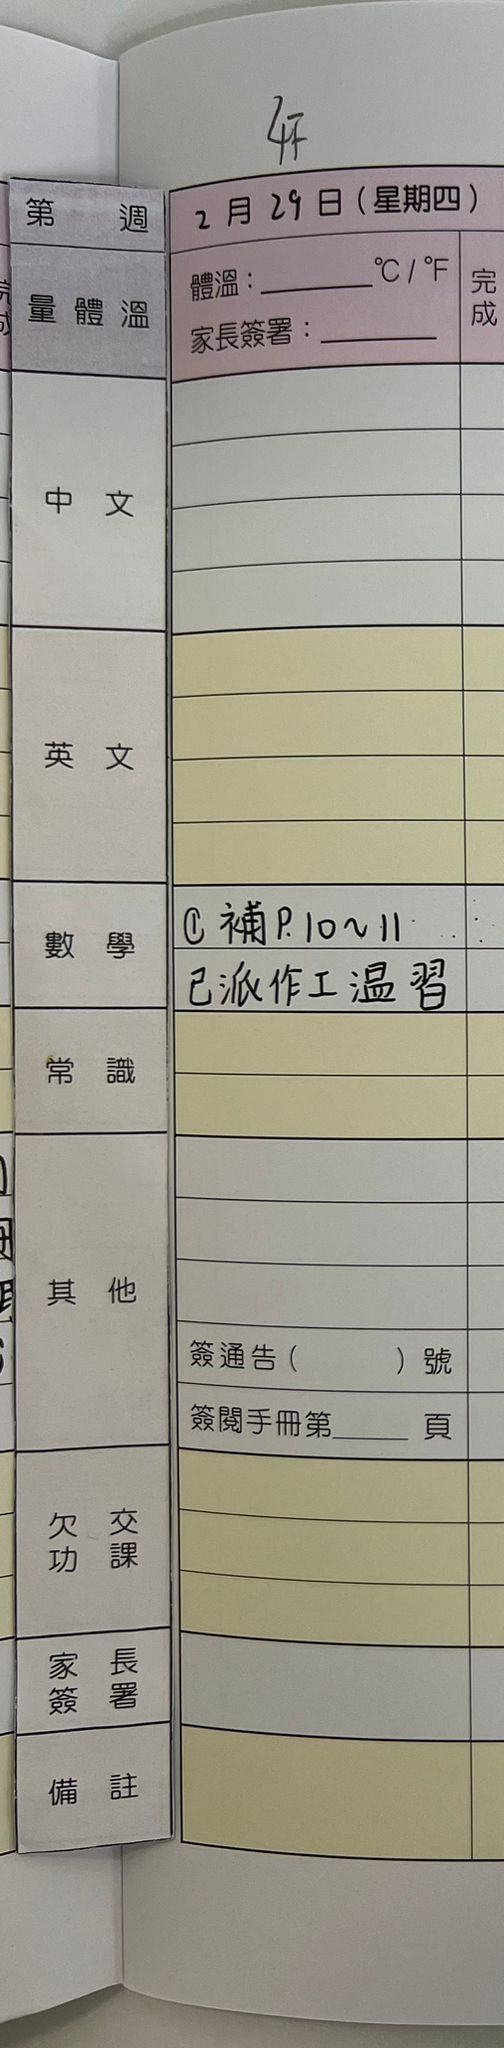 4F
第 週
2月29日(星期四)
量體溫
體溫:______°C/°F
家長簽署:______
完成
中文
英文
數學
① 補P.10~11
已派作工温習
常識
其他
簽通告( )號
簽閱手冊第____頁
欠交功課
家長簽署
備註